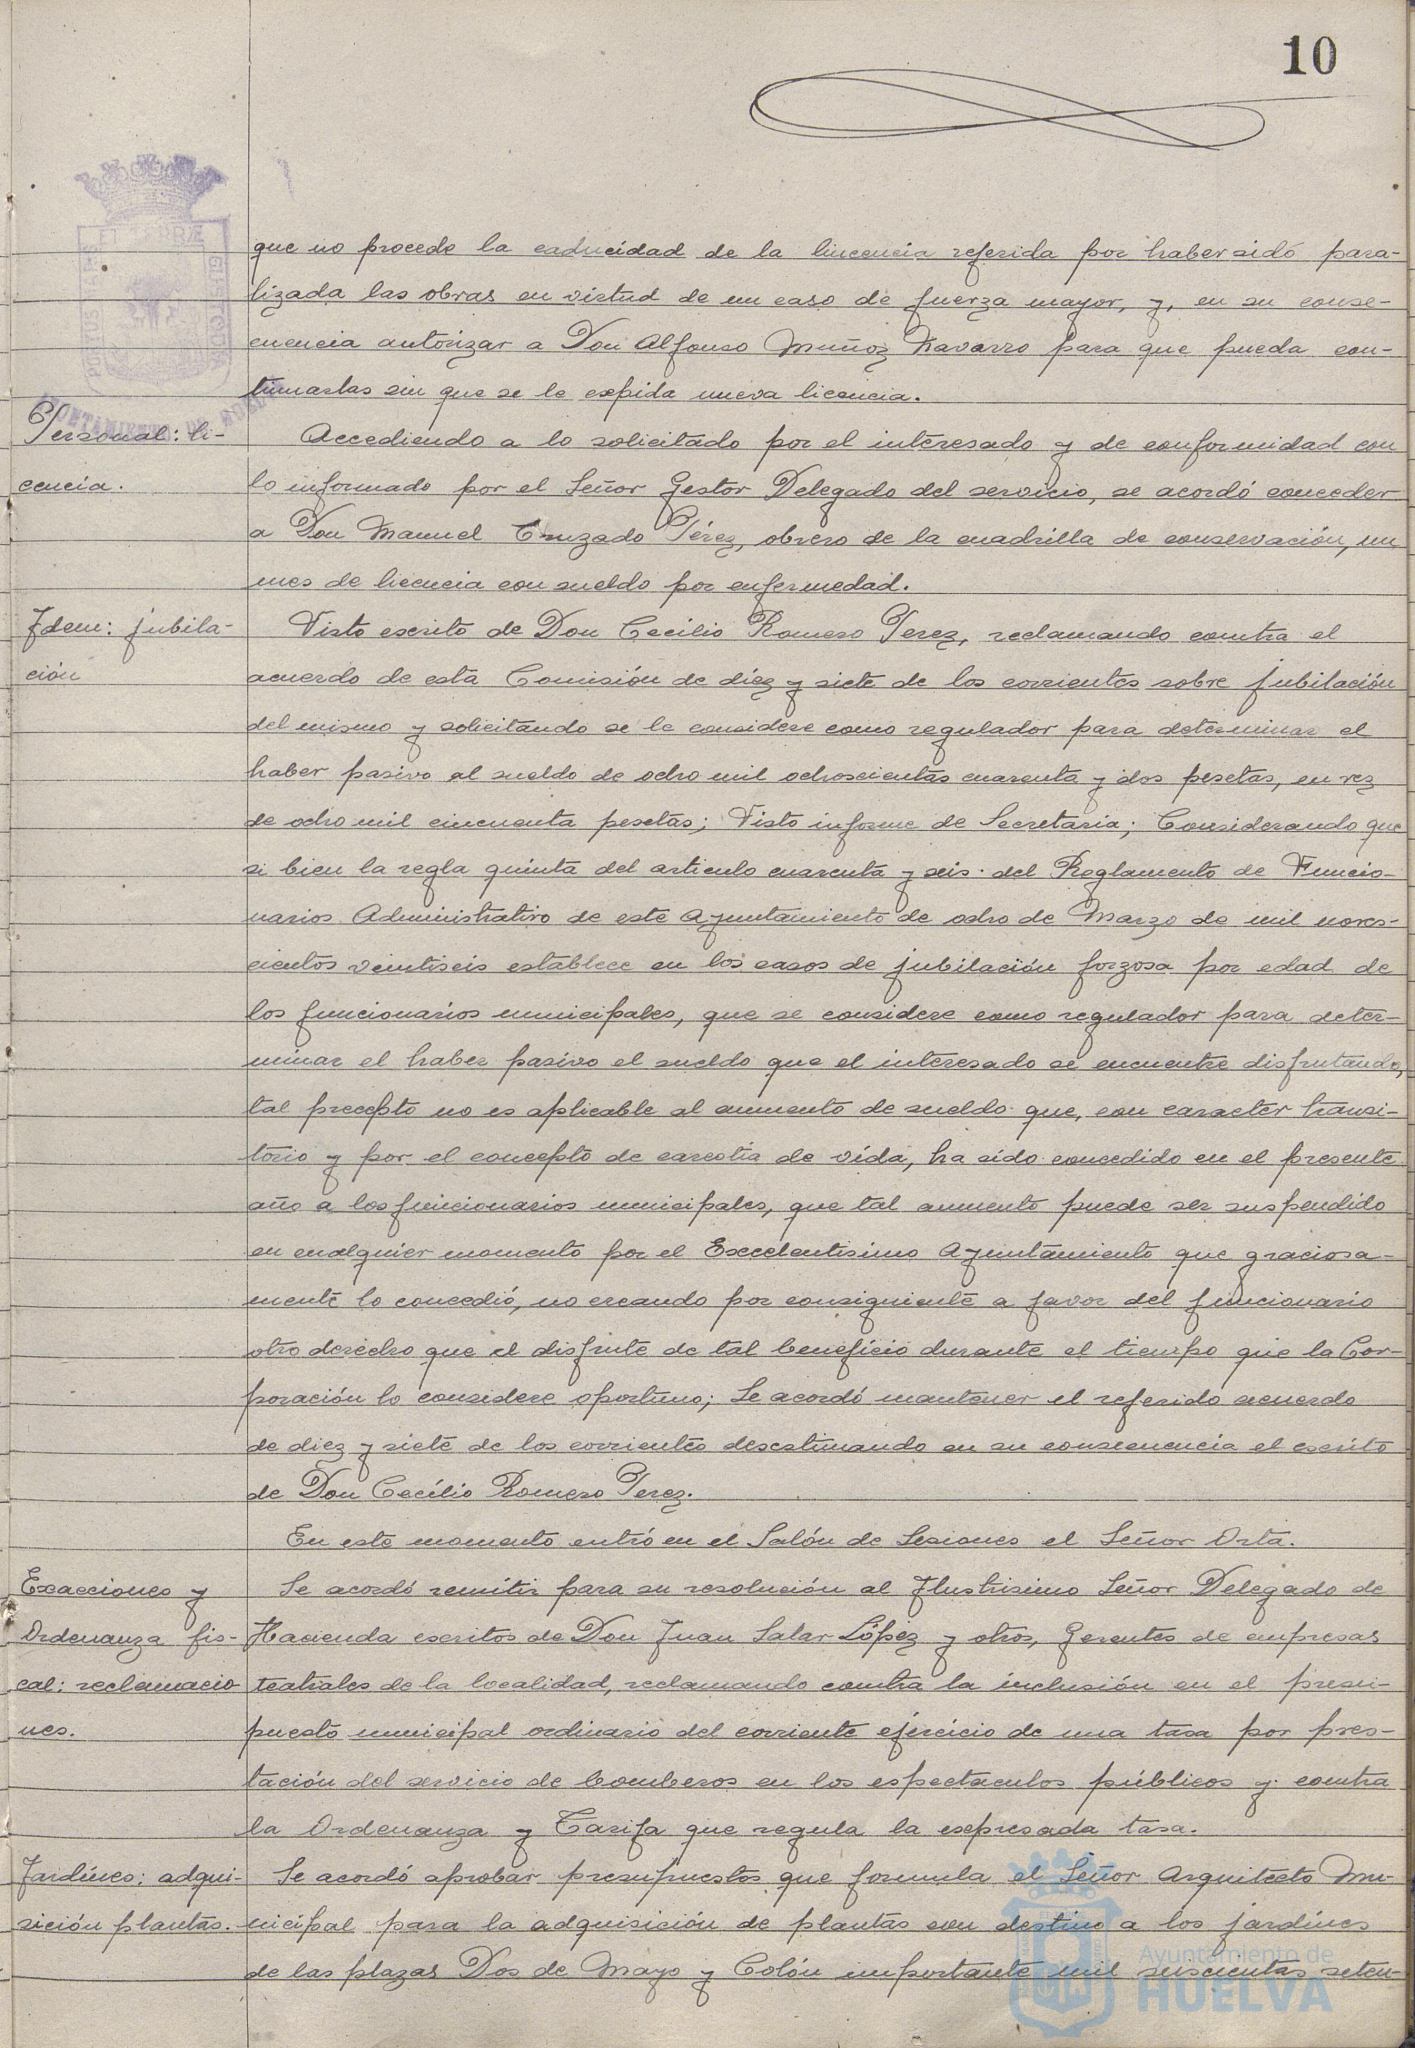 10
PORTUS MARIS ET TERRÆ CUSTODIA
AYUNTAMIENTO DE HUELVA
que no procede la caducidad de la lincencia referida por haber sido para-
lizada las obras en virtud de un caso de fuerza mayor, y, en su conse-
cuencia autorizar a Don Alfonso Muñoz Navarro para que pueda con-
tinuarlas sin que se le expida nueva licencia.
Personal: li-
cencia.
Accediendo a lo solicitado por el interesado y de conformidad con
lo informado por el Señor Gestor Delegado del servicio, se acordó conceder
a Don Manuel Cruzado Pérez, obrero de la cuadrilla de conservación, un
mes de licencia con sueldo por enfermedad.
Idem: jubila-
ción
Visto escrito de Don Cecilio Romero Perez, reclamando contra el
acuerdo de esta Comisión de diez y siete de los corrientes sobre jubilación
del mismo y solicitando se le considere como regulador para determinar el
haber pasivo al sueldo de ocho mil ochoscientas cuarenta y dos pesetas, en vez
de ocho mil cincuenta pesetas; Visto informe de Secretaria; Considerando que
si bien la regla quinta del articulo cuarenta y seis del Reglamento de Funcio-
narios Administrativo de este Ayuntamiento de ocho de Marzo de mil noves-
cientos veintiseis establece en los casos de jubilación forzosa por edad de
los funcionarios municipales, que se considere como regulador para deter-
minar el haber pasivo el sueldo que el interesado se encuentre disfrutando,
tal precepto no es aplicable al aumento de sueldo que, con caracter transi-
torio y por el concepto de carestia de vida, ha sido concedido en el presente
año a los funcionarios municipales, que tal aumento puede ser suspendido
en cualquier momento por el Excelentisimo Ayuntamiento que graciosa-
mente lo concedió, no creando por consiguiente a favor del funcionario
otro derecho que el disfrute de tal beneficio durante el tiempo que la Cor-
poración lo considere oportuno; Se acordó mantener el referido acuerdo
de diez y siete de los corrientes desestimando en su consecuencia el escrito
de Don Cecilio Romero Perez.
En este momento entró en el Salón de Sesiones el Señor Orta.
Exacciones y
Ordenanza fis-
cal: reclamacio
nes.
Se acordó remitir para su resolución al Ilustrisimo Señor Delegado de
Hacienda escritos de Don Juan Salar López y otros, Gerentes de empresas
teatrales de la localidad, reclamando contra la inclusión en el presu-
puesto municipal ordinario del corriente ejercicio de una tasa por pres-
tación del servicio de bomberos en los espectaculos públicos y contra
la Ordenanza y Tarifa que regula la expresada tasa.
Jardines: adqui-
sición plantas.
Se acordó aprobar presupuestos que formula el Señor Arquitecto Mu-
nicipal para la adquisición de plantas con destino a los jardines
de las plazas Dos de Mayo y Colón importante mil seiscientas seten-
Ayuntamiento de
HUELVA